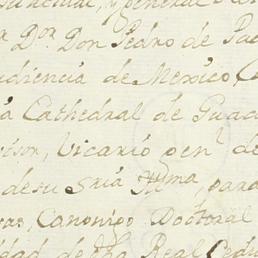 actual, y general
Dor. Don Pedro de
udiencia de Mexico,
a Cathedral de Guad
visor, Vicario genl. de
de su Sria Yllma, para
ras, Canonigo Doctoral
idad de dha Real Cedu